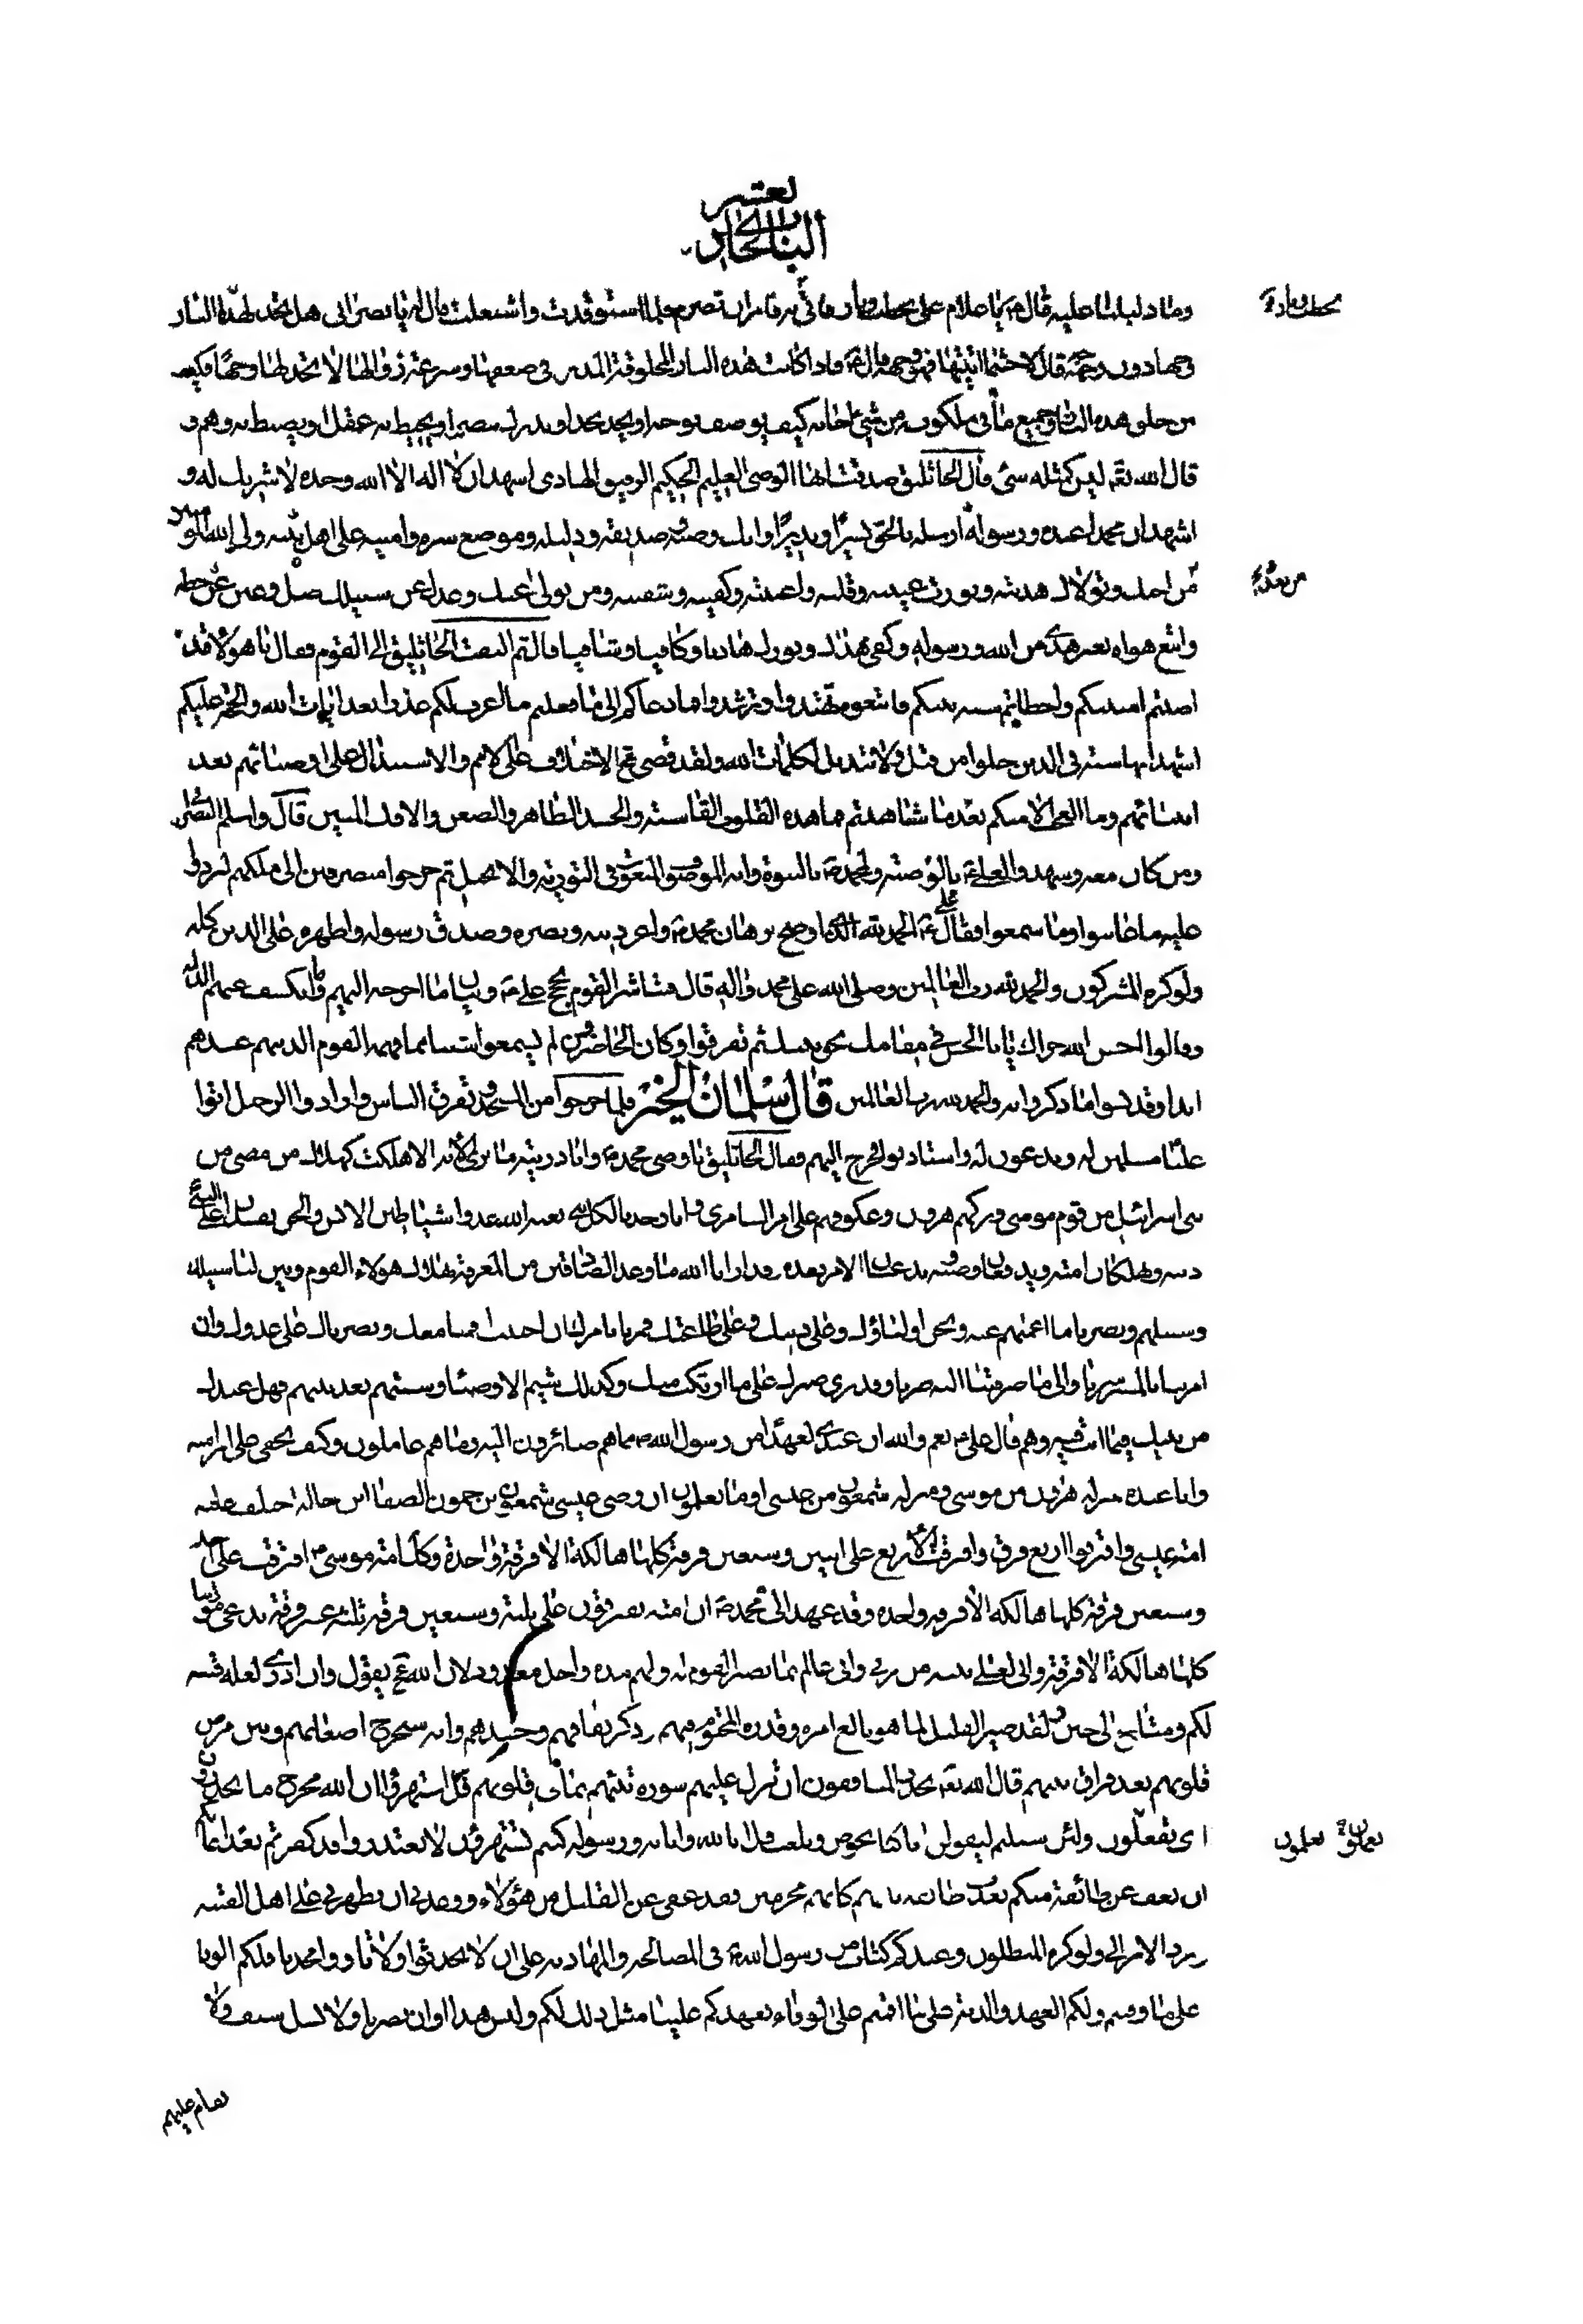 وما دليلنا عليه قال ع يا غلام على بحطب ونار فاتي به فامر ان تضرم فلما استوقدت واشتعلت قال له يا نصراني هل تجد لهذه النار
وجها دون وجه قال لا حيثما اتيتها فهو وجهها قال ع فاذا كانت هذه النار المخلوقة المدبرة في ضعفها وسرعة زوالها لا تجد لها وجها فكيف
من خلق هذه النار وجميع ما في ملكوته من شيء كيف يوصف بوجه او يحد بحد او يدرك ببصر او يحيط به عقل او يضبطه وهم و
قال الله تع ليس كمثله شئ قال الجاثليق صدقت ايها الوصي العليم الحكيم الرفيق الهادي اشهد ان لا اله الا الله وحده لا شريك له و
اشهد ان محمدا عبده ورسوله ارسله بالحق بشيرا ونذيرا وانك وصيه وصديقه ودليله وموضع سره وامينه على اهل بيته وولي
من احبك وتولاك هديته ونورت قلبه واغنيته وكفيته وشفيته ومن تولى عنك وعدل عن سبيلك ضل وغبن عن حظه
واتبع هواه بغير هدى من الله ورسوله وكفى هداك ونورك هاديا وكافيا وشافيا قال ثم التفت الجاثليق الى القوم فقال يا هؤلاء قد
اصبتم امنيتكم واخطاتم سنة نبيكم فاتبعوه تهتدوا وترشدوا فما دعاكم الى ما فعلتم ما اعرف لكم عذرا بعد ايات الله والحجة عليكم
اشهد انها سنة في الذين خلوا من قبل ولا تبديل لكلمات الله ولقد قضى عج الاختلاف على الامم والاستبدال على اوصيائهم بعد
انبيائهم وما العجب الا منكم بعد ما شاهدتم فما هذه القلوب القاسية والحسد الظاهر والضغن والافك المبين قال واسلم النصراني
ومن كان معه وشهدوا لعلي ع بالوصية ولمحمد ص بالنبوة وانه الموصوف المنعوت في التورية والانجيل ثم خرجوا منصرفين الى ملكهم ليردوا
عليه ما عاينوا وما سمعوا فقال علي ع الحمد لله الذي اوضح برهان محمد ص واعز دينه ونصره وصدق رسوله واظهره على الدين كله
ولو كره المشركون والحمد لله رب العالمين وصلى الله على محمد واله قال فتباشر القوم بحجج علي ع وبيان ما اخرجه اليهم وانكشف عنهم الذلة
وقالوا احسن الله جزاك يا ابا الحسن في مقامك بحق نبيك ثم تفرقوا وكان الحاضرون لم يسمعوا شيئا مما فهمه القوم الذين هم عندهم
ابدا وقد نسوا ما ذكروا به والحمد لله رب العالمين قال سلمان الخير فلما خرجوا من المسجد وتفرق الناس وارادوا الرحيل اتوا
عليا مسلمين له ويدعون له واستاذنوا فخرج اليهم فقال الجاثليق يا وصي محمد ص وابا ذريته ما نرى الامة الا هلكت كهلاك من مضى من
بني اسرائيل من قوم موسى وتركهم هرون وعكوفهم على امر السامري وانا وجدنا لكل نبي بعثه الله عدوا شياطين الانس والجن يفسدان على النبي
دينه ويهلكان امته ويدفعان وصيه ويدعيان الامر بعده وقد ارانا الله ما وعد الصادقين من المعرفة بهلاك هولاء القوم وبين لنا سبيلك
وسبيلهم وبصرنا ما اعماهم عنه ونحن اولياؤك وعلى دينك وعلى طاعتك فمرنا بامرك ان احببت اقمنا معك ونصرناك على عدوك وان
امرتنا بالمسير سرنا والى ما صرفتنا اليه صرنا وقد نرى صبرك على ما ارتكب منك وكذلك شيم الاوصياء وسنتهم بعد نبيهم فهل عندك
من نبيك فيما انت فيه وهم قال علي ع نعم والله ان عندي لعهدا من رسول الله ص مما هم صائرون اليه وما هم عاملون وكيف يخفى علي امر امته
وانا عنده بمنزلة هرون من موسى وبمنزلة شمعون من عيسى اوما تعلمون ان وصي عيسى شمعون بن حمون الصفا ابن خاله اختلف عليه
امة عيسى وافترقوا اربع فرق وافترقت الاربع على اثنين وسبعين فرقة كلها هالكة الا فرقة واحدة وكذا امة موسى افترقت على احد
وسبعين فرقة كلها هالكة الا فرقة واحدة وقد عهد الى محمد ص ان امته يفترقون على ثلثة وسبعين فرقة ثلثة عشر فرقة تدعي مودتنا
كلها هالكة الا فرقة واني لعلى بينة من ربي واني عالم بما يصير القوم له ولهم مدة واجل معدود لان الله عج يقول وان ادري لعله فتنة
لكم ومتاع الى حين ولقد صبر القليل لما هو بالغ امره وقدره المحتوم فيهم وذكر نفاقهم وحسدهم وانه سيخرج اضغانهم ويبين مرض
قلوبهم بعد فراق نبيهم قال الله تع يحذر المنافقون ان تنزل عليهم سورة تنبئهم بما في قلوبهم قل استهزؤا ان الله مخرج ما تحذرون
اي تفعلون ولئن سئلتهم ليقولن انما كنا نخوض ونلعب قل ابالله واياته ورسوله كنتم تستهزؤن لا تعتذروا قد كفرتم بعد ايمانكم
ان نعف عن طائفة منكم نعذب طائفة بانهم كانوا مجرمين فقد عفى عن القليل من هؤلاء ووعدني ان يظهرني على اهل الفتنة
ويرد الامر الي ولو كره المبطلون وعندكم كتاب من رسول الله ص في المصالحة والمهادنة على ان لا تحدثوا ولا تأووا محدثا فلكم الوفا
على ما وفيتم ولكم العهد والذمة على ما اقمتم على الوفاء بعهدكم علينا مثل ذلك لكم وليس هذا اوان نصرنا ولا يسل سيف ولا
يقام عليهم